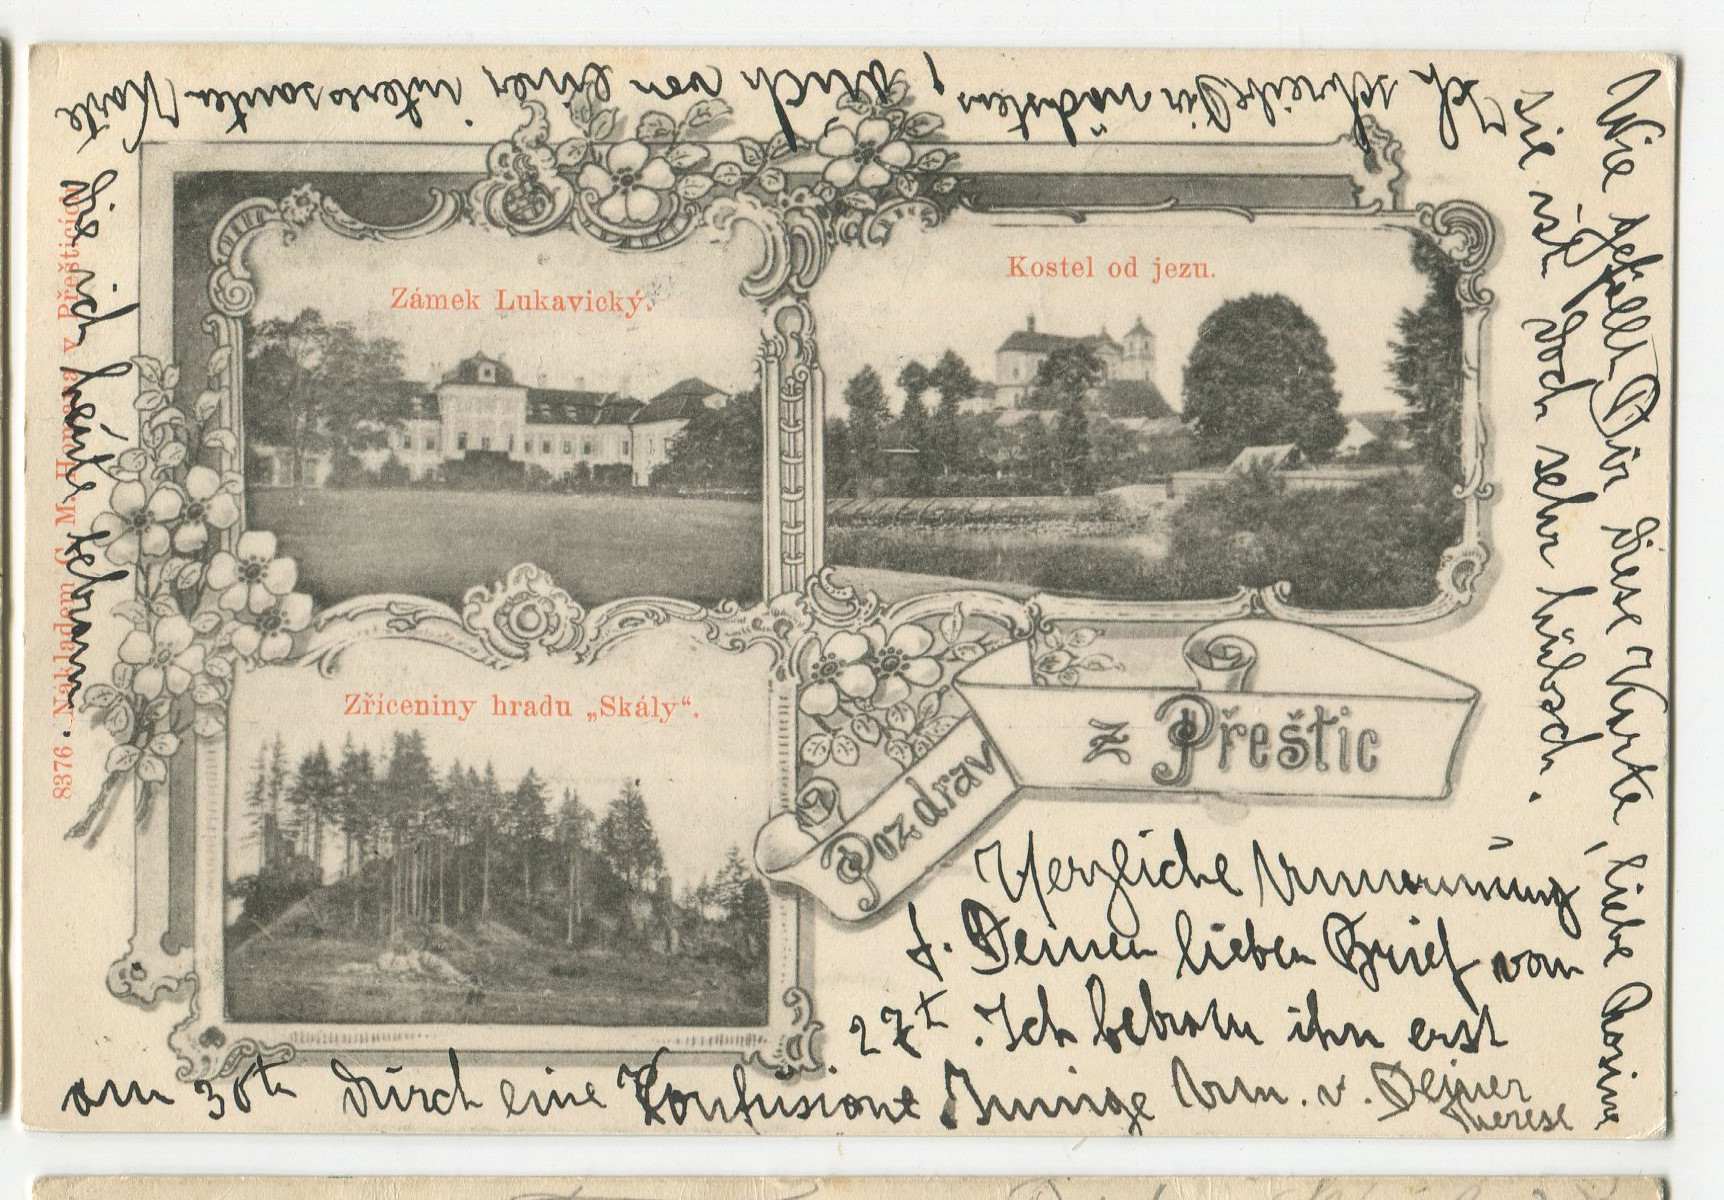 Zámek Lukavický.
Kostel od jezu.
Zříceniny hradu „Skály“.
Pozdrav
z Přeštic
8376. Nákladem C. M. v Přešticích
Herzliche Umarmung
f. Deinen lieben Brief vom
27t. Ich bekam ihn erst
am 30tn durch eine Konfusion Innige Um. v. Deiner
Therese
Wie gefällt Dir diese Karte, liebe Rosine
sie ist doch sehr hübsch.
Ich schreibe Dir nächstens, auch von einer interessanten Karte
die ich heute bekam